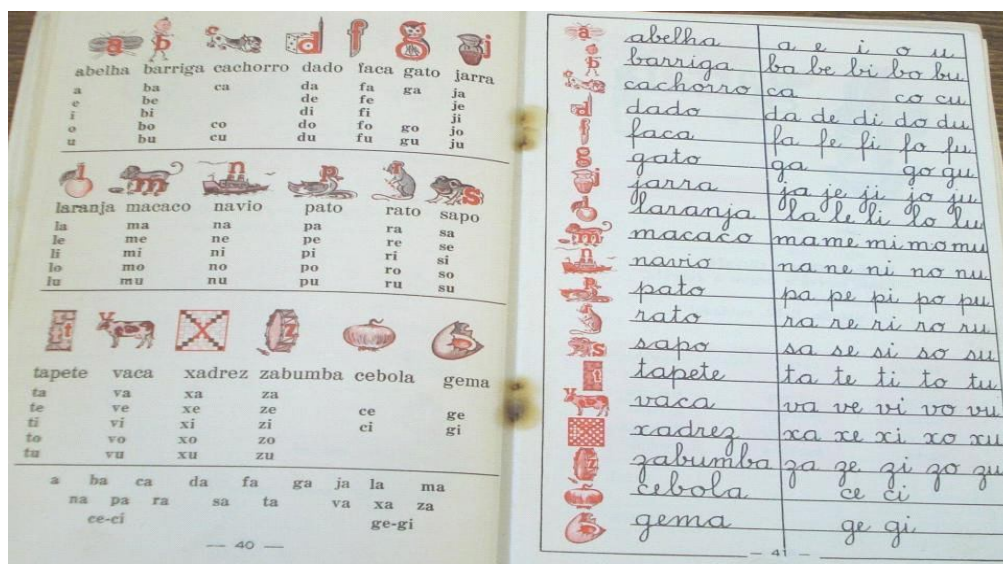 abelha barriga cachorro dado faca gato jarra
a ba ca da fa ga ja
e be de fe je
i bi di fi ji
o bo co do fo go jo
u bu cu du fu gu ju
laranja macaco navio pato rato sapo
la ma na pa ra sa
le me ne pe re se
li mi ni pi ri si
lo mo no po ro so
lu mu nu pu ru su
tapete vaca xadrez zabumba cebola gema
ta va xa za
te ve xe ze ce ge
ti vi xi zi ci gi
to vo xo zo
tu vu xu zu
a ba ca da fa ga ja la ma
na pa ra sa ta va xa za
ce-ci ge-gi
— 40 —
abelha a e i o u
barriga ba be bi bo bu
cachorro ca co cu
dado da de di do du
faca fa fe fi fo fu
gato ga go gu
jarra ja je ji jo ju
laranja la le li lo lu
macaco ma me mi mo mu
navio na ne ni no nu
pato pa pe pi po pu
rato ra re ri ro ru
sapo sa se si so su
tapete ta te ti to tu
vaca va ve vi vo vu
xadrez xa xe xi xo xu
zabumba za ze zi zo zu
cebola ce ci
gema ge gi
— 41 —